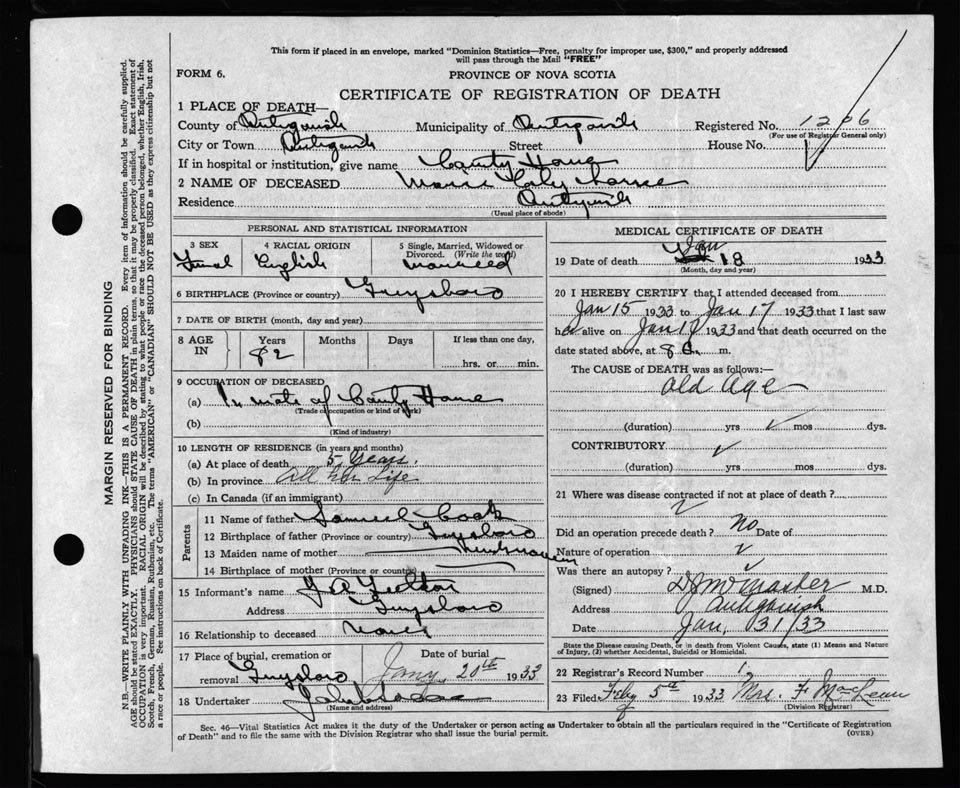 This form if placed in an envelope, marked "Dominion Statistics—Free, penalty for improper use, $300," and properly addressed
will pass through the Mail "FREE"
FORM 6.
PROVINCE OF NOVA SCOTIA
CERTIFICATE OF REGISTRATION OF DEATH
1 PLACE OF DEATH—
County of Antigonish Municipality of Antigonish Registered No. 1206
(For use of Registrar General only)
City or Town Antigonish Street House No.
If in hospital or institution, give name County Home
2 NAME OF DECEASED
Residence Antigonish
(Usual place of abode)
PERSONAL AND STATISTICAL INFORMATION
3 SEX 4 RACIAL ORIGIN 5 Single, Married, Widowed or
Divorced. (Write the word)
Femal English married
6 BIRTHPLACE (Province or country) Guysboro
7 DATE OF BIRTH (month, day and year)
8 AGE IN Years Months Days If less than one day,
82 hrs. or min.
9 OCCUPATION OF DECEASED
(a) In mate of County Home
(Trade or occupation or kind of work)
(b)
(Kind of industry)
10 LENGTH OF RESIDENCE (in years and months)
(a) At place of death 5 Years.
(b) In province All her Life
(c) In Canada (if an immigrant)
Parents
11 Name of father Samuel Cook
12 Birthplace of father (Province or country) Guysboro
13 Maiden name of mother
14 Birthplace of mother (Province or country)
15 Informant's name
Address Guysboro
16 Relationship to deceased
17 Place of burial, cremation or Date of burial
removal Guysboro Jany 20th 1933
18 Undertaker
(Name and address)
MEDICAL CERTIFICATE OF DEATH
19 Date of death Jan 18 1933
(Month, day and year)
20 I HEREBY CERTIFY that I attended deceased from
Jan 15 1933 to Jan 17 1933 that I last saw
her alive on Jan 17 1933 and that death occurred on
date stated above, at 8 a. m.
The CAUSE of DEATH was as follows:—
Old Age
(duration) yrs mos dys.
CONTRIBUTORY
(duration) yrs mos dys.
21 Where was disease contracted if not at place of death?
Did an operation precede death? No Date of
Nature of operation
Was there an autopsy?
(Signed) M.D.
Address Antigonish
Date Jan, 31/33
State the Disease causing Death, or in death from Violent Causes, state (1) Means and Nature
of Injury, (2) whether Accidental, Suicidal or Homicidal.
22 Registrar's Record Number
23 Filed Feby 5th 1933 Mrs. F. MacLean
(Division Registrar)
Sec. 46—Vital Statistics Act makes it the duty of the Undertaker or person acting as Undertaker to obtain all the particulars required in the "Certificate of Registration
of Death" and to file the same with the Division Registrar who shall issue the burial permit.
(OVER)
MARGIN RESERVED FOR BINDING
N.B.—WRITE PLAINLY WITH UNFADING INK—THIS IS A PERMANENT RECORD. Every item of information should be carefully supplied.
AGE should be stated EXACTLY. PHYSICIANS should STATE CAUSE OF DEATH in plain terms, so that it may be properly classified. Exact statement of
OCCUPATION is very important. RACIAL ORIGIN will be described by stating to what people or race the deceased person belonged, whether English, Irish,
Scotch, French, German, Russian, Ruthenian, etc. The terms "AMERICAN" or "CANADIAN" SHOULD NOT BE USED as they express citizenship but not
a race or people. See instructions on back of Certificate.